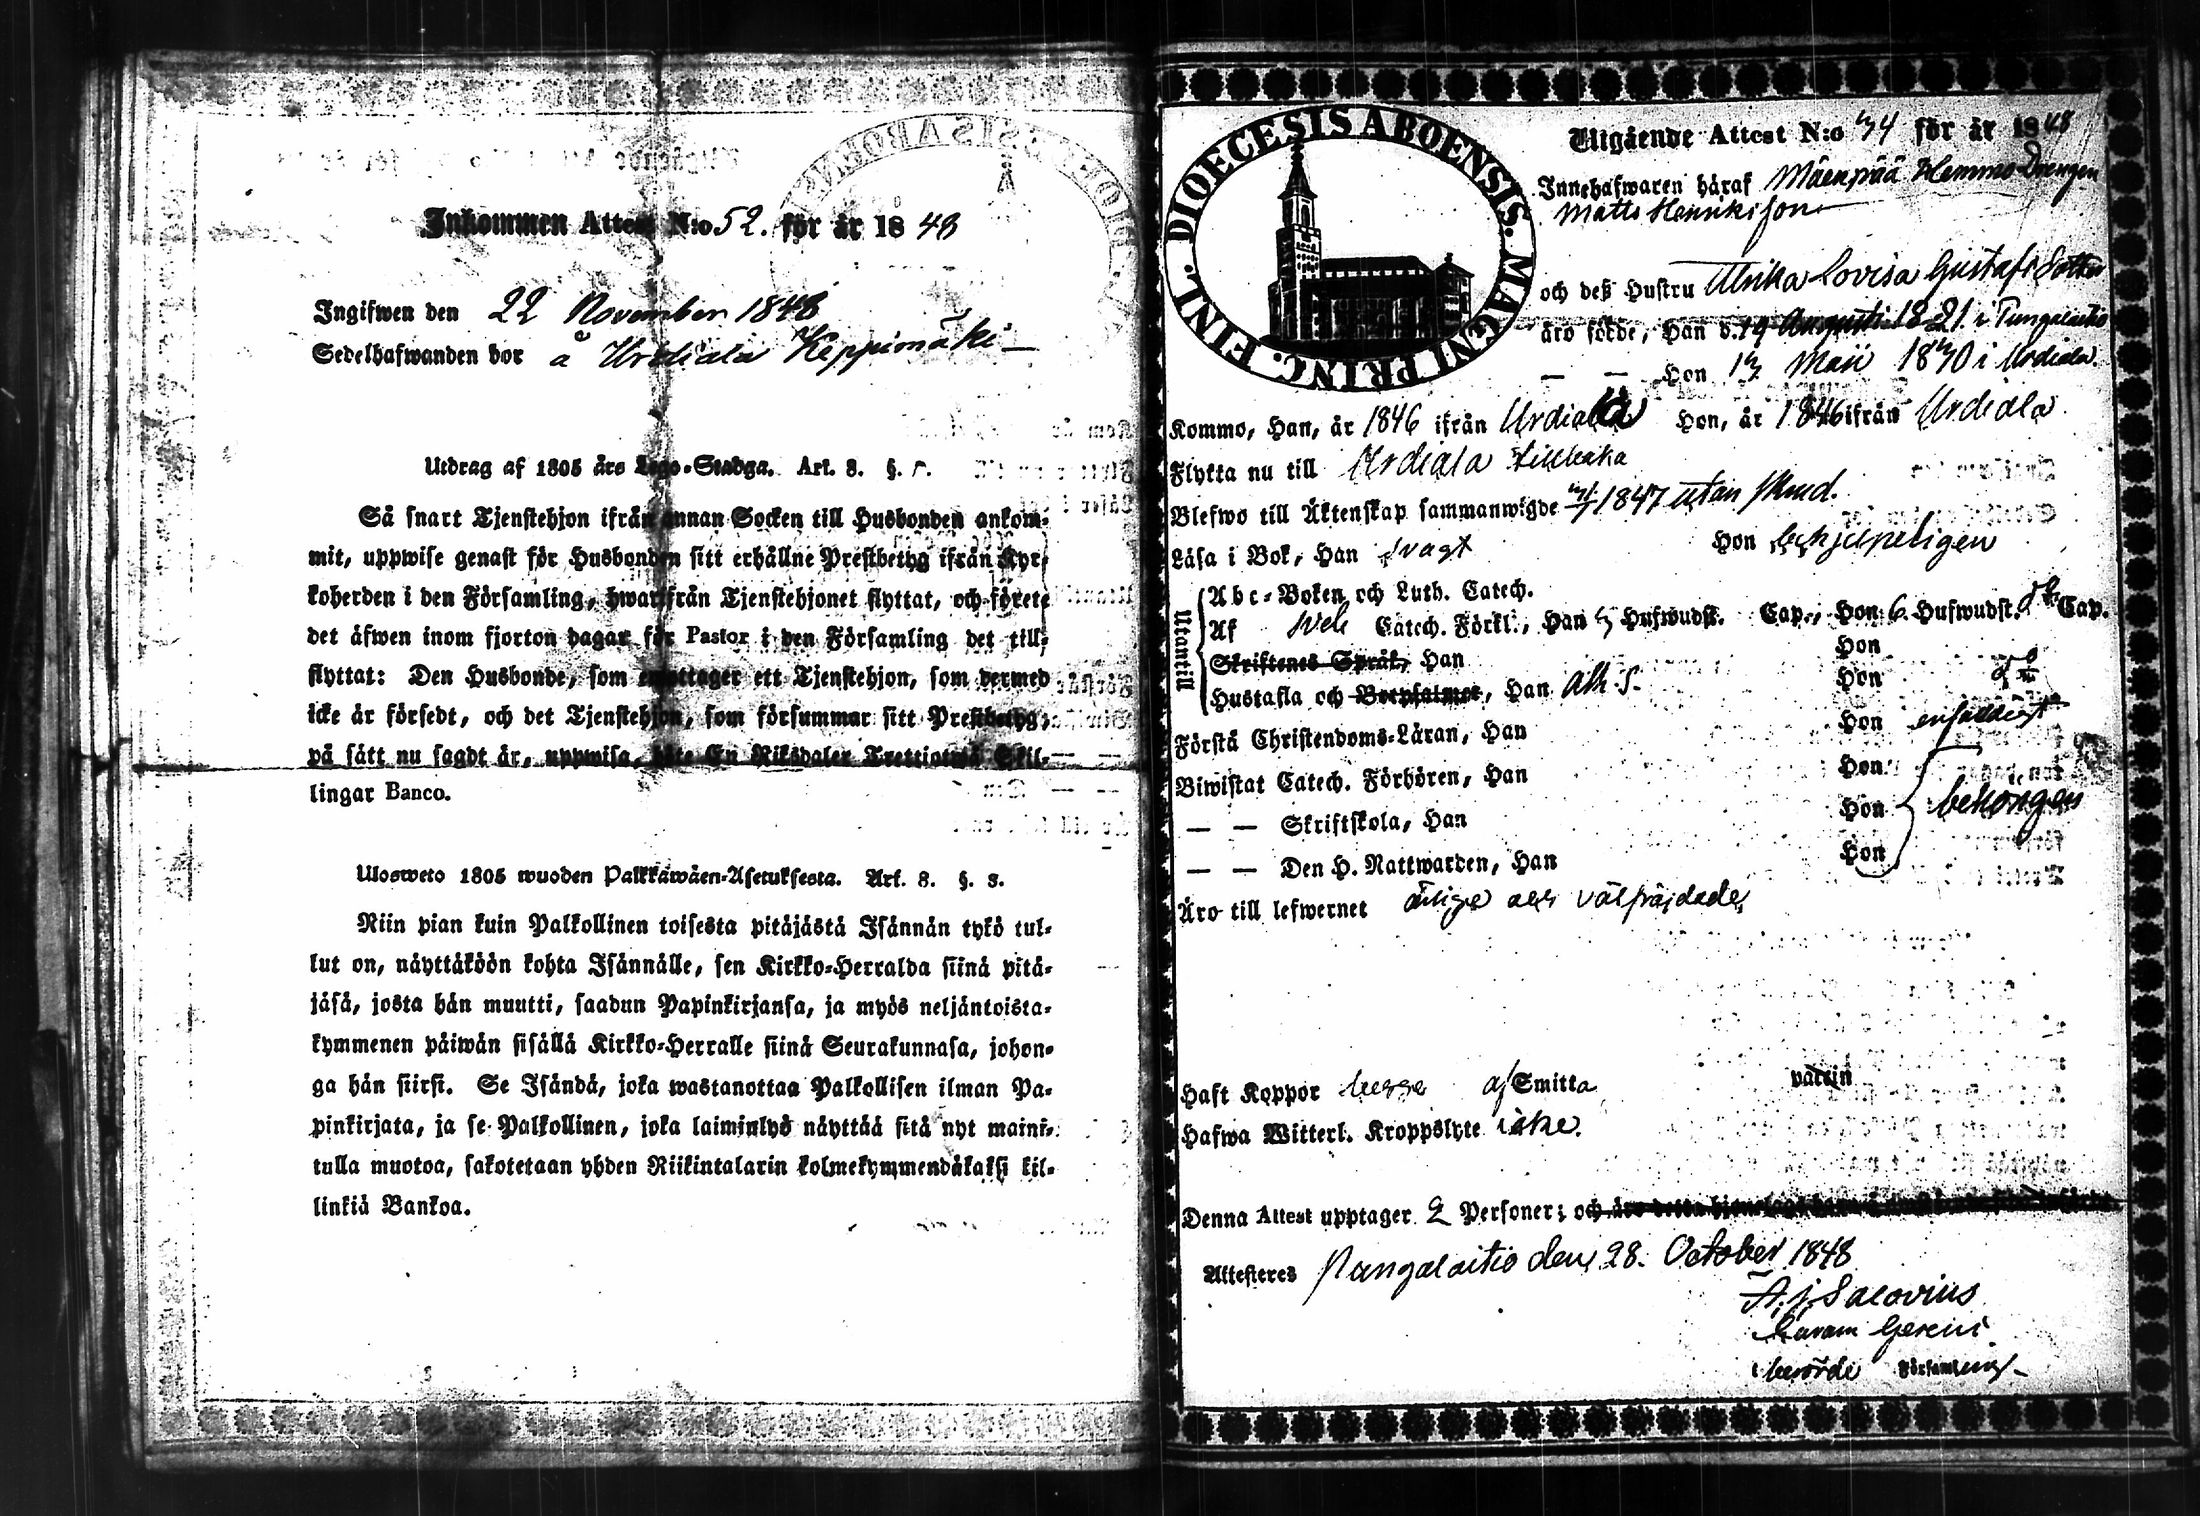 Inkommen Attest N:o 52. för år 1848
Ingifwen den 22 November 1848
Sedelhafwanden bor å Urdiala Keppimäki
Utdrag af 1805 års Lego-Stadga. Art. 8. §.
Så snart Tjenstehjon ifrån annan Socken till Husbonden ankom-
mit, uppwise genast för Husbonden sitt erhållne Prestbetyg ifrån Kyr-
koherden i den Församling, hwarifrån Tjenstehjonet flyttat, och förete
det äfwen inom fjorton dagar för Pastor i den Församling det till-
flyttat: Den Husbonde, som emottager ett Tjenstehjon, som dermed
icke är försedt, och det Tjenstehjon, som försummar sitt Prestbetyg,
på sätt nu sagdt är, uppwisa, böte En Riksdaler Trettiotwå Skil-
lingar Banco.
Ulosweto 1805 wuoden Palkkawäen-Asetuksesta. Art. 8. §. 8.
Niin pian kuin Palkollinen toisesta pitäjästä Isännän tykö tul-
lut on, näyttäköön kohta Isännälle, sen Kirkko-Herralda siinä pitä-
jäsä, josta hän muutti, saadun Papinkirjansa, ja myös neljäntoista-
kymmenen päiwän sisällä Kirkko-Herralle siinä Seurakunnasa, johon-
ga hän siirsi. Se Isändä, joka wastanottaa Palkollisen ilman Pa-
pinkirjata, ja se Palkollinen, joka laiminlyö näyttää sitä nyt maini-
tulla muotoa, sakotetaan yhden Riikintalarin kolmekymmendäkaksi kil-
linkiä Bankoa.
DIOECESIS ABOENSIS. MAGNI PRINC. FINL.
Utgående Attest N:o 34 för år 1848
Innehafwaren häraf Mäenpää Hemmo Drengen
Matts Henriksson
och deß Hustru Ulrika Lovisa Gustafs Dotter
äro födde, Han d. 19 Augusti 1821 i Pungalaitio
— — Hon Maii i Urdiala
Kommo, Han, år 1846 ifrån Urdiala Hon, år 1846 ifrån Urdiala
Flytta nu till Urdiala tillbaka
Blefwo till Äktenskap sammanwigde 1847 utan skud.
Läsa i Bok, Han svagt Hon
Utantill
Abc-Boken och Luth. Catech.
Af Sveb Catech. Förkl., Han 5 Hufwudst. Cap., Hon 6. Hufwudst. Cap.
Skriftenes Språk, Han Hon
Hustafla och Botpsalmer, Han Hon
Förstå Christendoms-Läran, Han Hon enfaldigt
Biwistat Catech. Förhören, Han Hon
— — Skriftskola, Han Hon behörigen
— — Den H. Nattwarden, Han Hon
Äro till lefwernet ärlige och välfräjdade
Haft Koppor begge af Smitta vaccin
Hafwa Witterl. Kroppslyte icke.
Denna Attest upptager 2 Personer; och
Attesteres Pungalaitio den 28. October 1848
F. J. Salovius
berörde Församling